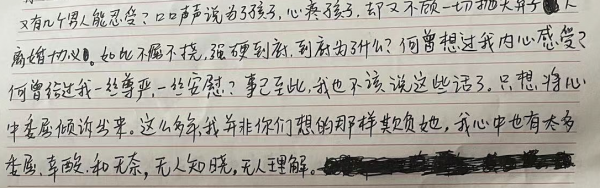 又有几个男人能忍受？口口声声说为了孩子，心疼孩子，却又不顾一切抛夫弃子 人
离婚协议。如此不屈不挠，强硬到底，到底为了什么？何曾想过我内心感受？
何曾给过我一丝尊严一丝安慰？事已至此，我也不该说这些话了。只想将心
中委屈倾诉出来。这么多年，我并非你们想的那样欺负她，我心中也有太多
委屈、辛酸、和无奈，无人知晓，无人理解。